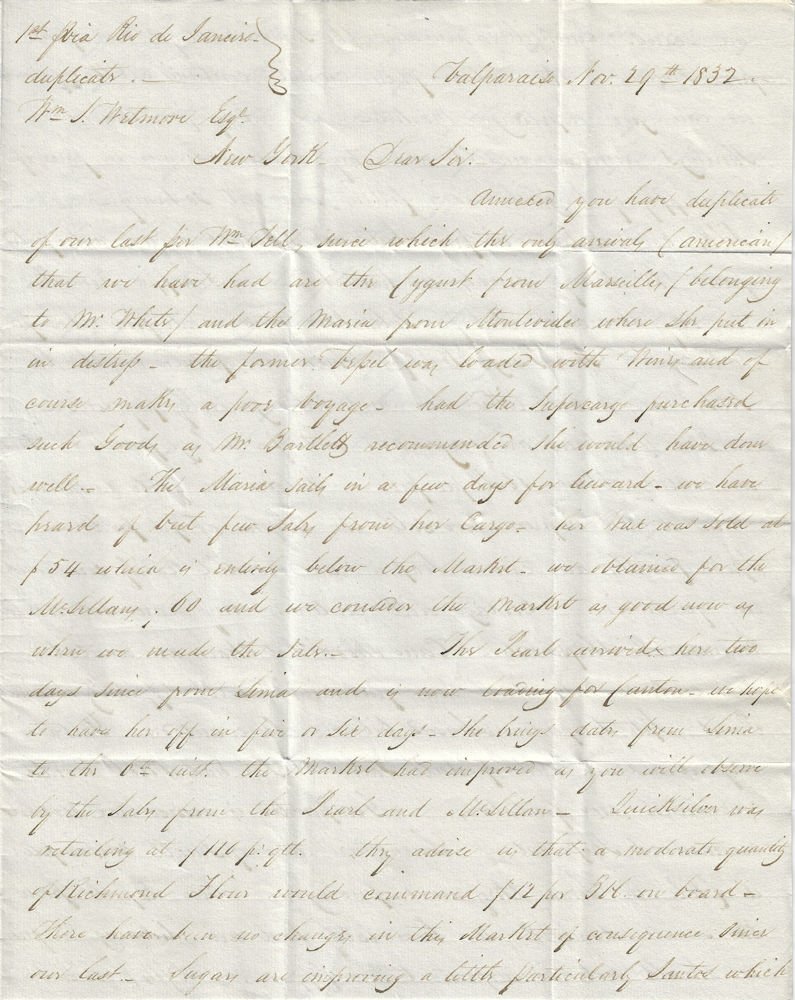 1st pr via Rio de Janeiro -
duplicate. -
Valparaiso Nov. 29th 1832.
Wm S. Wetmore Esqr.
New York - Dear Sir. -
Annexed you have duplicate
of our last per Wm Tell, since which the only arrivals (american)
that we have had are the Cygnet from Marseilles, (belonging
to Mr. White) and the Maria from Montevideo where she put in
in distress - the former Vessel was loaded with Wines and of
course makes a poor voyage - had the Supercargo purchased
such Goods as Mr. Bartlett recommended she would have done
well - The Maria sails in a few days for leeward - we have
heard of but few Sales from her Cargo - her Wax was sold at
$54 which is entirely below the Market - we obtained for the
McLellans, 60 and we consider the market as good now as
when we made the Sale. - The Pearl arrived here two
days since from Lima and is now loading for Canton - we hope
to have her off in five or six days - She brings dates from Lima
to the 6th inst. the Market had improved as you will observe
by the Sales from the Pearl and McLellan - Quicksilver was
retailing at $110 p. qtl. they advise us that a moderate quantity
of Richmond Flour would command $12 per Bbl. on board -
There have been no changes in this Market of consequence since
our last. - Sugars are improving a little particularly Santos which